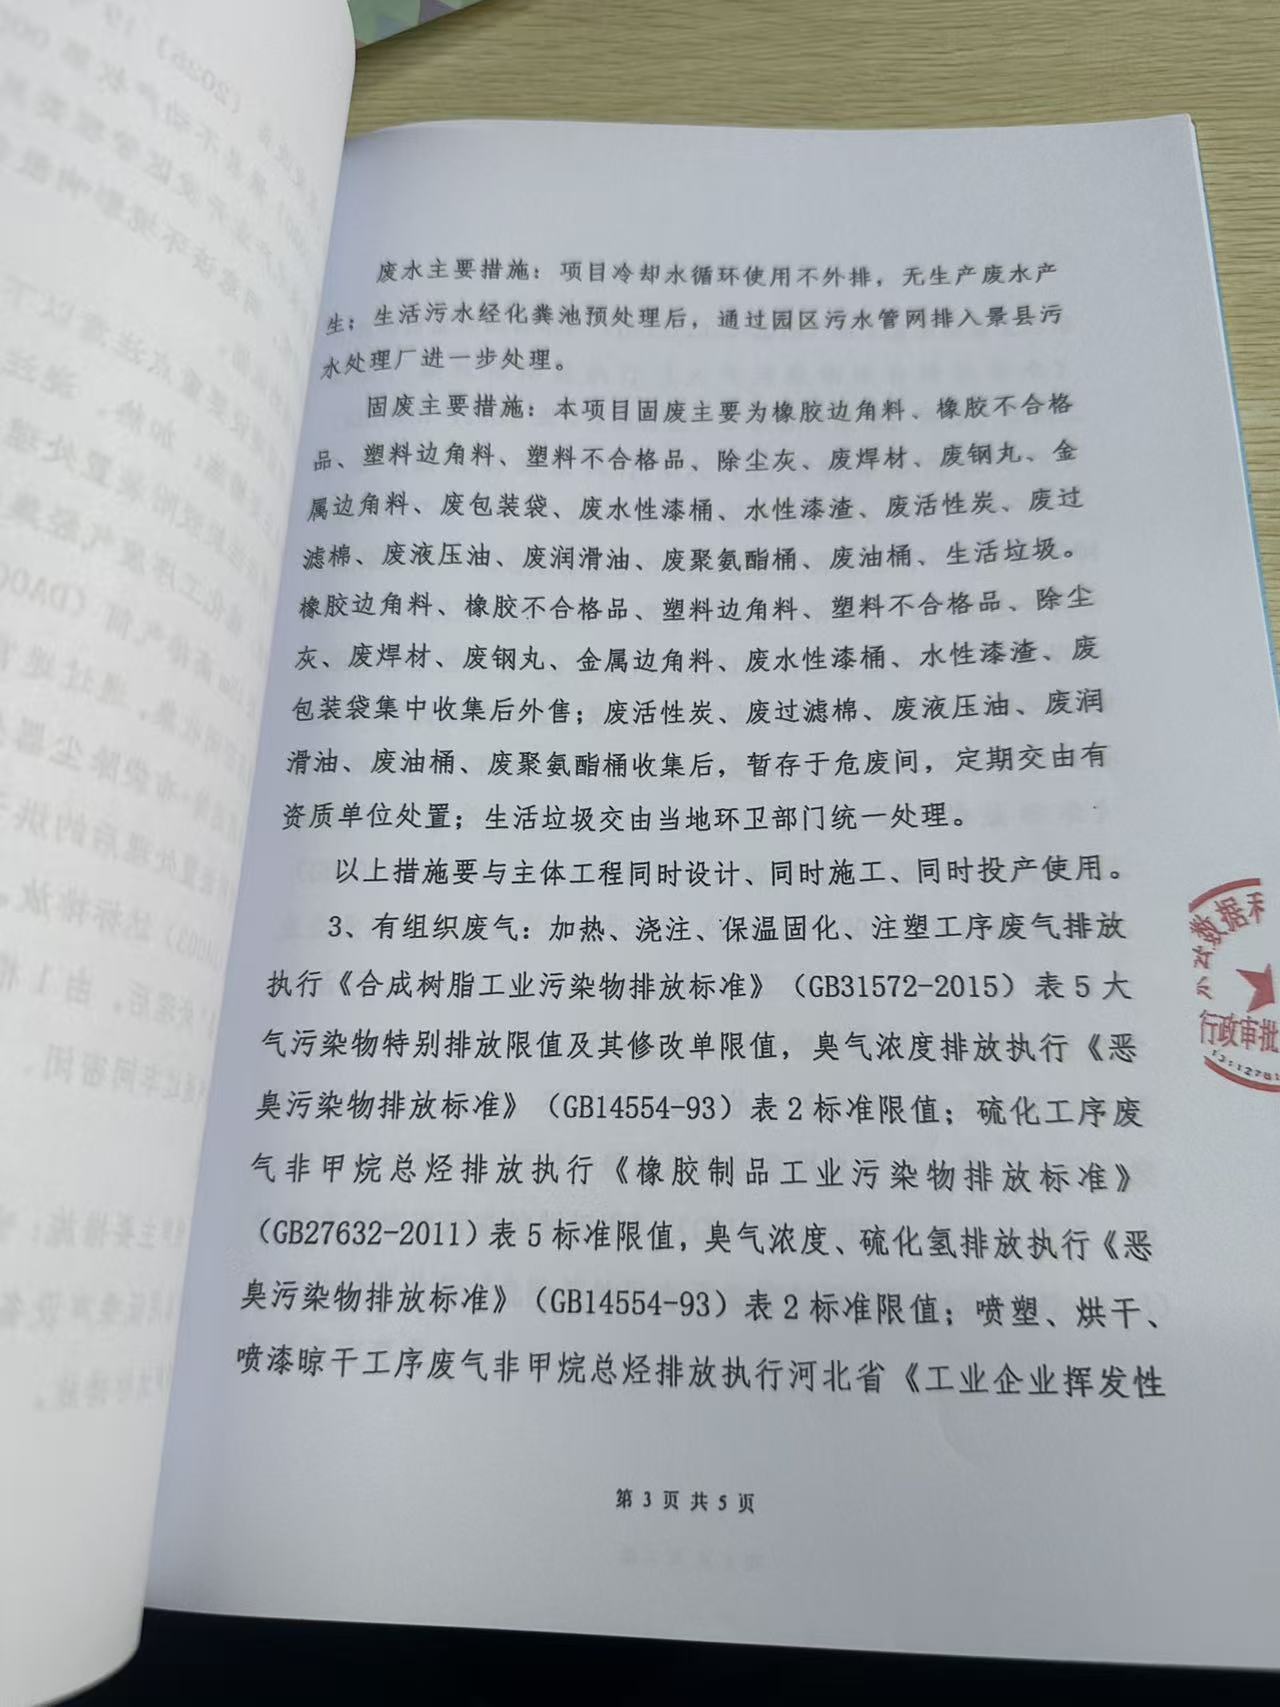 废水主要措施：项目冷却水循环使用不外排，无生产废水产
生；生活污水经化粪池预处理后，通过园区污水管网排入景县污
水处理厂进一步处理。
固废主要措施：本项目固废主要为橡胶边角料、橡胶不合格
品、塑料边角料、塑料不合格品、除尘灰、废焊材、废钢丸、金
属边角料、废包装袋、废水性漆桶、水性漆渣、废活性炭、废过
滤棉、废液压油、废润滑油、废聚氨酯桶、废油桶、生活垃圾。
橡胶边角料、橡胶不合格品、塑料边角料、塑料不合格品、除尘
灰、废焊材、废钢丸、金属边角料、废水性漆桶、水性漆渣、废
包装袋集中收集后外售；废活性炭、废过滤棉、废液压油、废润
滑油、废油桶、废聚氨酯桶收集后，暂存于危废间，定期交由有
资质单位处置；生活垃圾交由当地环卫部门统一处理。
以上措施要与主体工程同时设计、同时施工、同时投产使用。
3、有组织废气：加热、浇注、保温固化、注塑工序废气排放
执行《合成树脂工业污染物排放标准》（GB31572-2015）表 5 大
气污染物特别排放限值及其修改单限值，臭气浓度排放执行《恶
臭污染物排放标准》（GB14554-93）表 2 标准限值；硫化工序废
气非甲烷总烃排放执行《橡胶制品工业污染物排放标准》
（GB27632-2011）表 5 标准限值，臭气浓度、硫化氢排放执行《恶
臭污染物排放标准》（GB14554-93）表 2 标准限值；喷塑、烘干、
喷漆晾干工序废气非甲烷总烃排放执行河北省《工业企业挥发性
第 3 页 共 5 页
数据和
行政审批